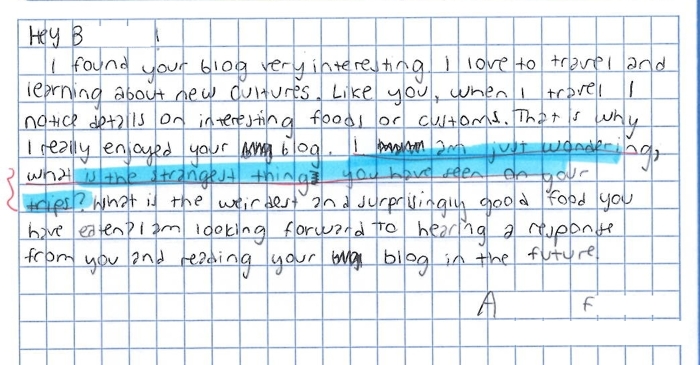 Hey B
I found your blog very interesting. I love to travel and
learning about new cultures. Like you, when I travel I
notice details on interesting foods or customs. That is why
I really enjoyed your blog. I am just wondering,
what is the strangest thing you have seen on your
trips? What is the weirdest and surprisingly good food you
have eaten? I am looking forward to hearing a response
from you and reading your blog in the future.
A F